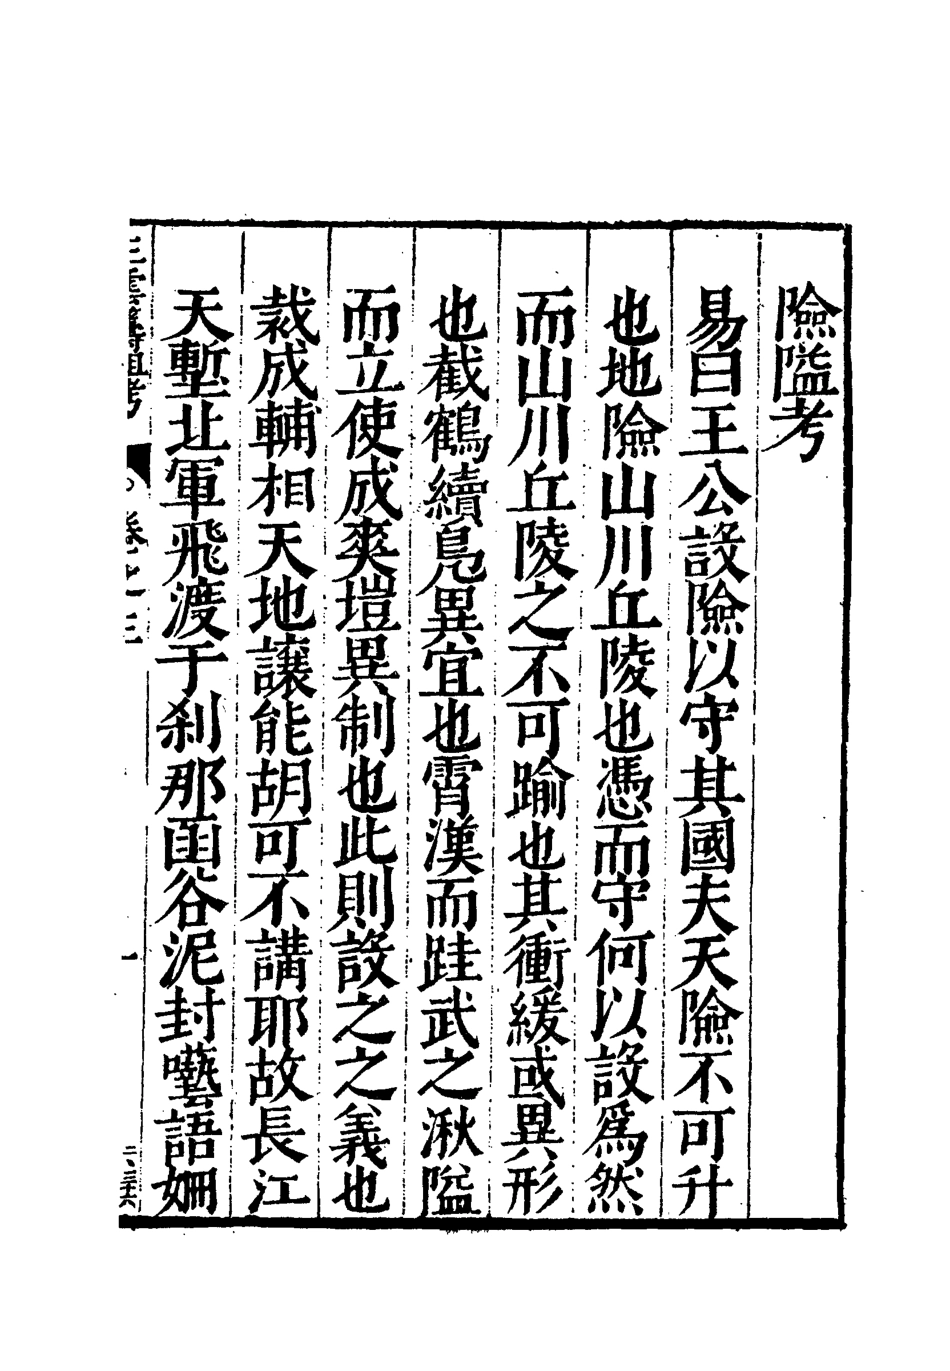 險隘考
易曰王公設險以守其國夫天險不可升
也地險山川丘陵也憑而守何以設爲然
而山川丘陵之不可踰也其衝緩或異形
也截鶴續鳧異宜也霄漢而跬武之湫隘
而立使成爽塏異制也此則設之之義也
裁成輔相天地讓能胡可不講耶故長江
天塹北軍飛渡于刹那函谷泥封囈語姍
三雲籌俎考
卷之三
一